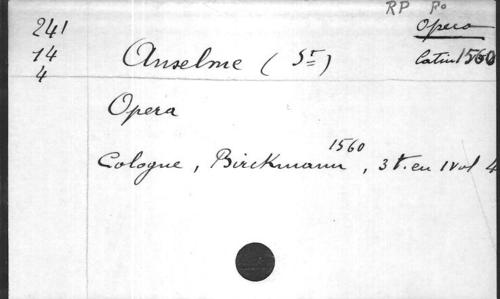 RP Ro
241
14
4
Anselme (St)
Opera
Latin 1560
Opera
Cologne, Birckmann 1560, 3 t. en 1 vol 4